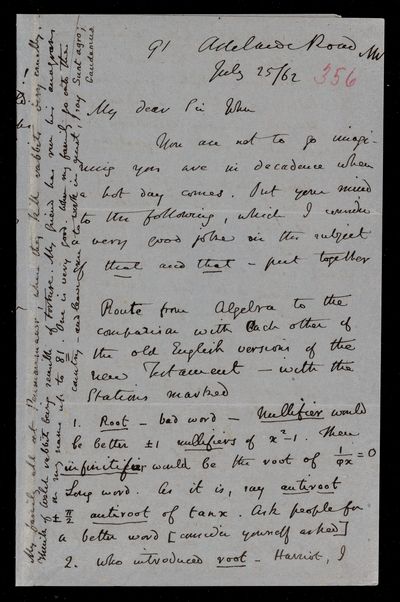 91 Adelaide Road NW
July 25/62 356
My dear Sir John
You are not to go imagi-
ning you are in decadence when
a hot day comes. Put your mind
to the following, which I consider
a very good joke in the subject
of that and that - put together
Route from Algebra to the
comparison with each other of
the old English versions of the
new Testament - with the
Stations marked
1. Root - bad word - Nullifier would
be better ±1 nullifiers of x²-1. Then
infinitifier would be the root of 1/φx = 0
Long word. As it is, say antiroot
± π/2 antiroot of tan x. Ask people for
a better word [consider yourself asked]
2. Who introduced root - Harriot, I
My family all at , where they kill rabbits very cruelly,
Think of boiled rabbit being result of torture. My friend has run his anagrams
on my name up to 81. One is very good. When my family go into the
country - and leave me to work in quiet, I say Sunt agro,
Gaudeamus